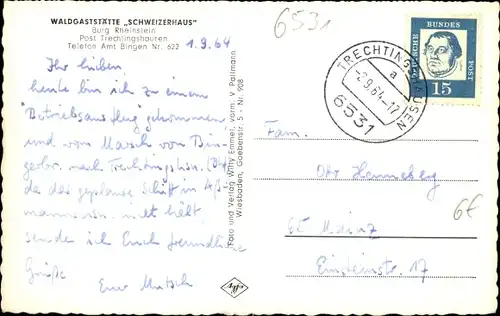 WALDGASTSTÄTTE „SCHWEIZERHAUS"
Burg Rheinstein
Post Trechtingshausen
Telefon Amt Bingen Nr. 622
1.9.64
6531
Ihr Lieben
heute bin ich zu einem
Betriebsausflug gekommen
und vom Marsch von Bin-
nach
da das geplante Schiff in
mannshausen nicht hält,
sende ich Euch freundliche
Grüße
Euer
Foto und Verlag Willy Emmel, vorm. V. Pallmann
Wiesbaden, Goebenstr. 5 - Nr. 908
TRECHTINGSHAUSEN
a
-2.9.64-17
6531
DEUTSCHE
BUNDES
POST
15
Fam.
Otto Henneberg
6€
65 Mainz
Einsteinstr. 17